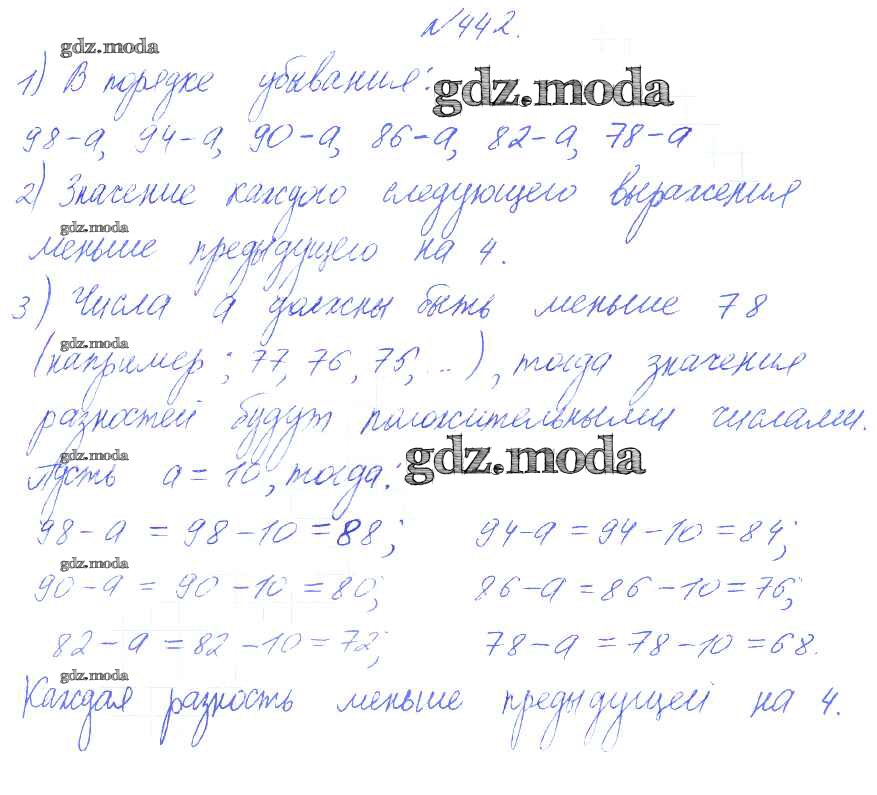 №442.
gdz.moda
1) В порядке убывания:
gdz.moda
98-а, 94-а, 90-а, 86-а, 82-а, 78-а
2) Значение каждого следующего выражения
gdz.moda
меньше предыдущего на 4.
3) Числа а должны быть меньше 78
gdz.moda
(например; 77, 76, 75, ...), тогда значения
разностей будут положительными числами.
gdz.moda
gdz.moda
Пусть а = 10, тогда:
98-а = 98-10=88; 94-а = 94-10=84;
gdz.moda
90-а = 90-10=80; 86-а = 86-10=76;
82-а = 82-10=72; 78-а = 78-10=68.
gdz.moda
Каждая разность меньше предыдущей на 4.